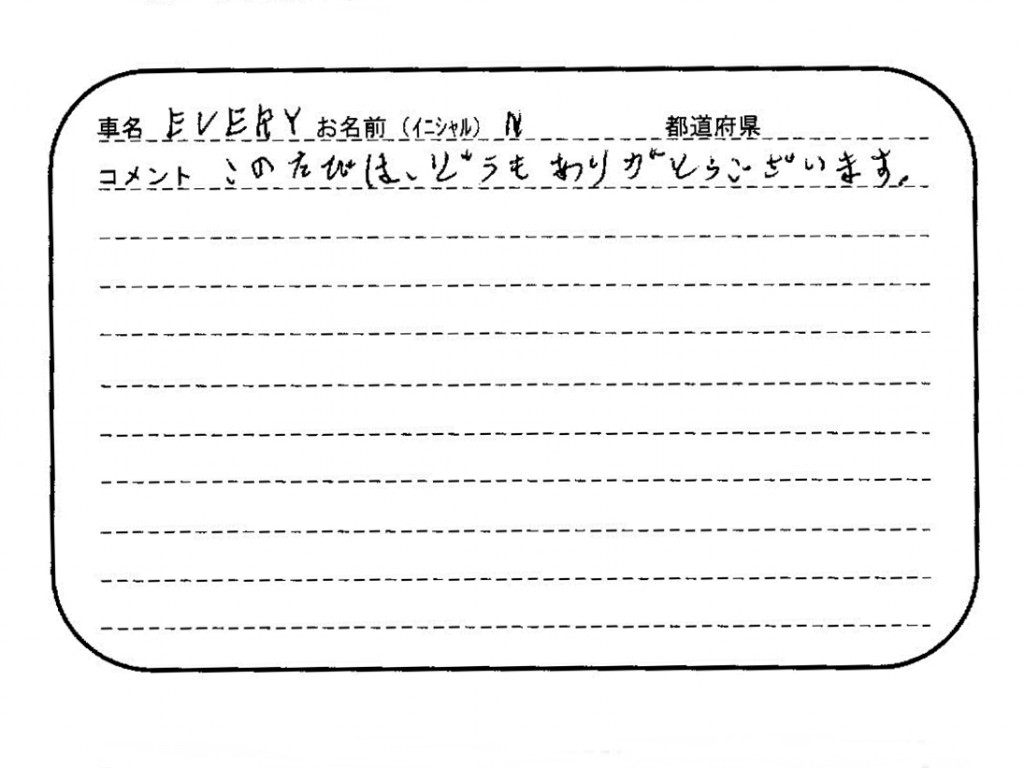 車名 EVERY お名前（ｲﾆｼｬﾙ） N 都道府県
コメント このたびは、どうもありがとうございます。